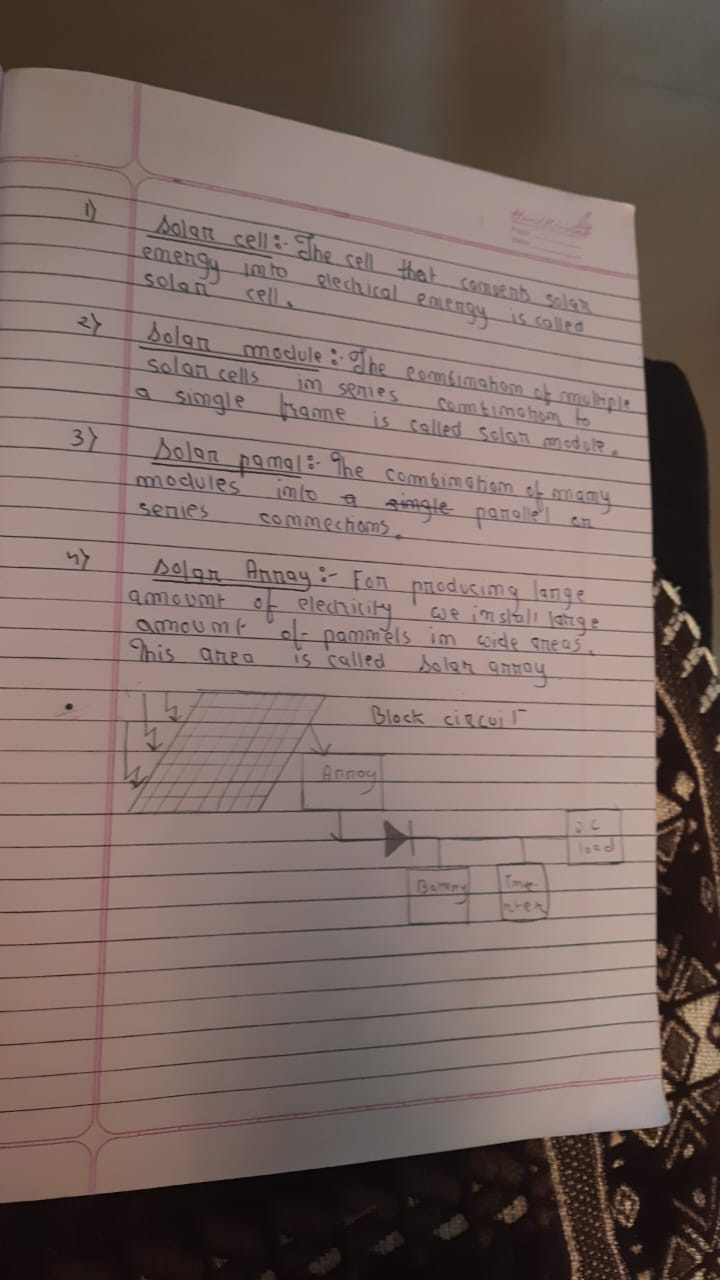 1) Solar cell:- The cell that convents solar
energy into electrical energy is called
solar cell.
2) Solar module:- The combination of multiple
solar cells in series combination to
a single frame is called solar module.
3) Solar panal:- The combination of many
modules into a single parallel or
series connections.
4) Solar Array:- For producing large
amount of electricity we install large
amount of pannels in wide areas.
This area is called solar array
Block circuit
Array
DC
load
Battery
Inve-
rter